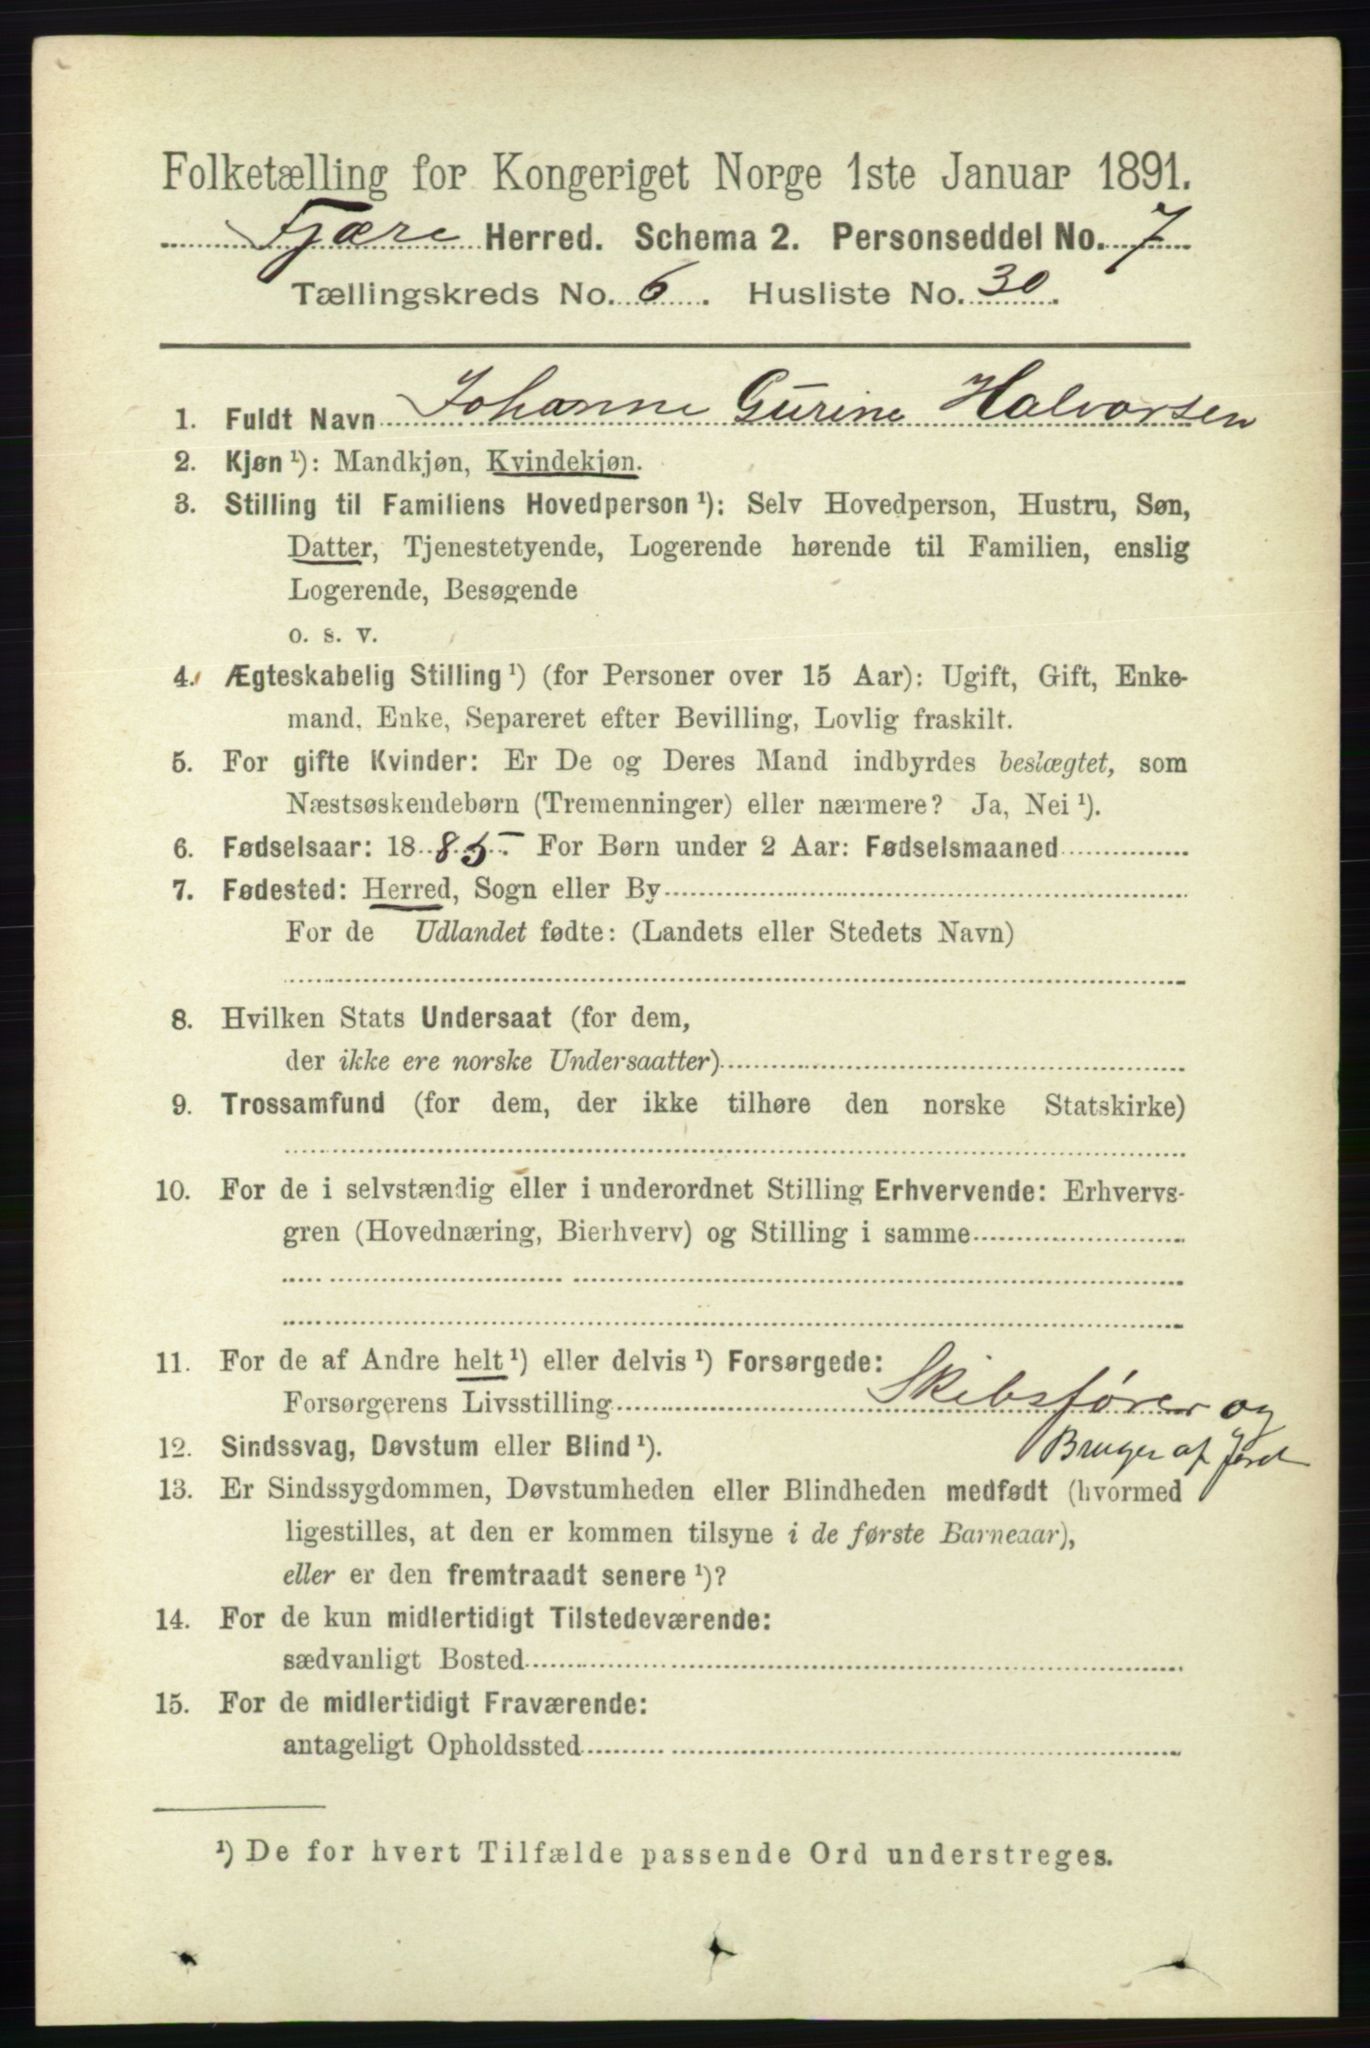 Folketælling for Kongeriget Norge 1ste Januar 1891.
Fjære Herred. Schema 2. Personseddel No. 7
Tællingskreds No. 6. Husliste No. 30.
1. Fuldt Navn Johanne Gurine Halvorsen
2. Kjøn ¹): Mandkjøn, Kvindekjøn.
3. Stilling til Familiens Hovedperson ¹): Selv Hovedperson, Hustru, Søn,
Datter, Tjenestetyende, Logerende hørende til Familien, enslig
Logerende, Besøgende
o. s. v.
4. Ægteskabelig Stilling ¹) (for Personer over 15 Aar): Ugift, Gift, Enke-
mand, Enke, Separeret efter Bevilling, Lovlig fraskilt.
5. For gifte Kvinder: Er De og Deres Mand indbyrdes beslægtet, som
Næstsøskendebørn (Tremenninger) eller nærmere? Ja, Nei ¹).
6. Fødselsaar: 1885. For Børn under 2 Aar: Fødselsmaaned
7. Fødested: Herred, Sogn eller By
For de Udlandet fødte: (Landets eller Stedets Navn)
8. Hvilken Stats Undersaat (for dem,
der ikke ere norske Undersaatter)
9. Trossamfund (for dem, der ikke tilhøre den norske Statskirke)
10. For de i selvstændig eller i underordnet Stilling Erhvervende: Erhvervs-
gren (Hovednæring, Bierhverv) og Stilling i samme
11. For de af Andre helt ¹) eller delvis ¹) Forsørgede:
Forsørgerens Livsstilling Skibsfører og
Bruger af Jord
12. Sindssvag, Døvstum eller Blind ¹).
13. Er Sindssygdommen, Døvstumheden eller Blindheden medfødt (hvormed
ligestilles, at den er kommen tilsyne i de første Barneaar),
eller er den fremtraadt senere ¹)?
14. For de kun midlertidigt Tilstedeværende:
sædvanligt Bosted
15. For de midlertidigt Fraværende:
antageligt Opholdssted
¹) De for hvert Tilfælde passende Ord understreges.